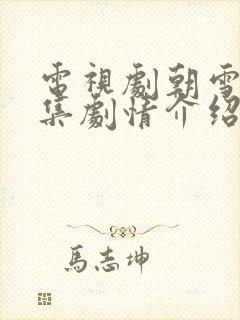 電視劇朝雪
集劇情介紹
馬志坤